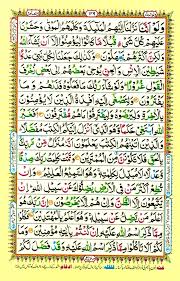 وَلَوْ اَنَّنَا نَزَّلْنَاۤ اِلَيْهِمُ الْمَلٰٓئِكَةَ وَكَلَّمَهُمُ الْمَوْتٰى وَحَشَرْنَا
عَلَيْهِمْ كُلَّ شَيْءٍ قُبُلًا مَّا كَانُوْا لِيُؤْمِنُوْۤا اِلَّاۤ اَنْ يَّشَآءَ اللّٰهُ
وَلٰكِنَّ اَكْثَرَهُمْ يَجْهَلُوْنَ وَكَذٰلِكَ جَعَلْنَا لِكُلِّ نَبِيٍّ عَدُوًّا
شَيٰطِيْنَ الْاِنْسِ وَالْجِنِّ يُوْحِيْ بَعْضُهُمْ اِلٰى بَعْضٍ زُخْرُفَ
الْقَوْلِ غُرُوْرًا وَلَوْ شَآءَ رَبُّكَ مَا فَعَلُوْهُ فَذَرْهُمْ وَمَا
يَفْتَرُوْنَ وَلِتَصْغٰۤى اِلَيْهِ اَفْـِٕدَةُ الَّذِيْنَ لَا يُؤْمِنُوْنَ بِالْاٰخِرَةِ
وَلِيَرْضَوْهُ وَلِيَقْتَرِفُوْا مَا هُمْ مُّقْتَرِفُوْنَ اَفَغَيْرَ اللّٰهِ
اَبْتَغِيْ حَكَمًا وَّهُوَ الَّذِيْۤ اَنْزَلَ اِلَيْكُمُ الْكِتٰبَ مُفَصَّلًا
وَالَّذِيْنَ اٰتَيْنٰهُمُ الْكِتٰبَ يَعْلَمُوْنَ اَنَّهٗ مُنَزَّلٌ مِّنْ رَّبِّكَ
بِالْحَقِّ فَلَا تَكُوْنَنَّ مِنَ الْمُمْتَرِيْنَ وَتَمَّتْ كَلِمَتُ رَبِّكَ صِدْقًا
وَّعَدْلًا لَا مُبَدِّلَ لِكَلِمٰتِهٖ وَهُوَ السَّمِيْعُ الْعَلِيْمُ وَاِنْ تُطِعْ
اَكْثَرَ مَنْ فِي الْاَرْضِ يُضِلُّوْكَ عَنْ سَبِيْلِ اللّٰهِ اِنْ
يَّتَّبِعُوْنَ اِلَّا الظَّنَّ وَاِنْ هُمْ اِلَّا يَخْرُصُوْنَ اِنَّ رَبَّكَ هُوَ
اَعْلَمُ مَنْ يَّضِلُّ عَنْ سَبِيْلِهٖ وَهُوَ اَعْلَمُ بِالْمُهْتَدِيْنَ فَكُلُوْا
مِمَّا ذُكِرَ اسْمُ اللّٰهِ عَلَيْهِ اِنْ كُنْتُمْ بِاٰيٰتِهٖ مُؤْمِنِيْنَ وَمَا
لَكُمْ اَلَّا تَاْكُلُوْا مِمَّا ذُكِرَ اسْمُ اللّٰهِ عَلَيْهِ وَقَدْ فَصَّلَ لَكُمْ